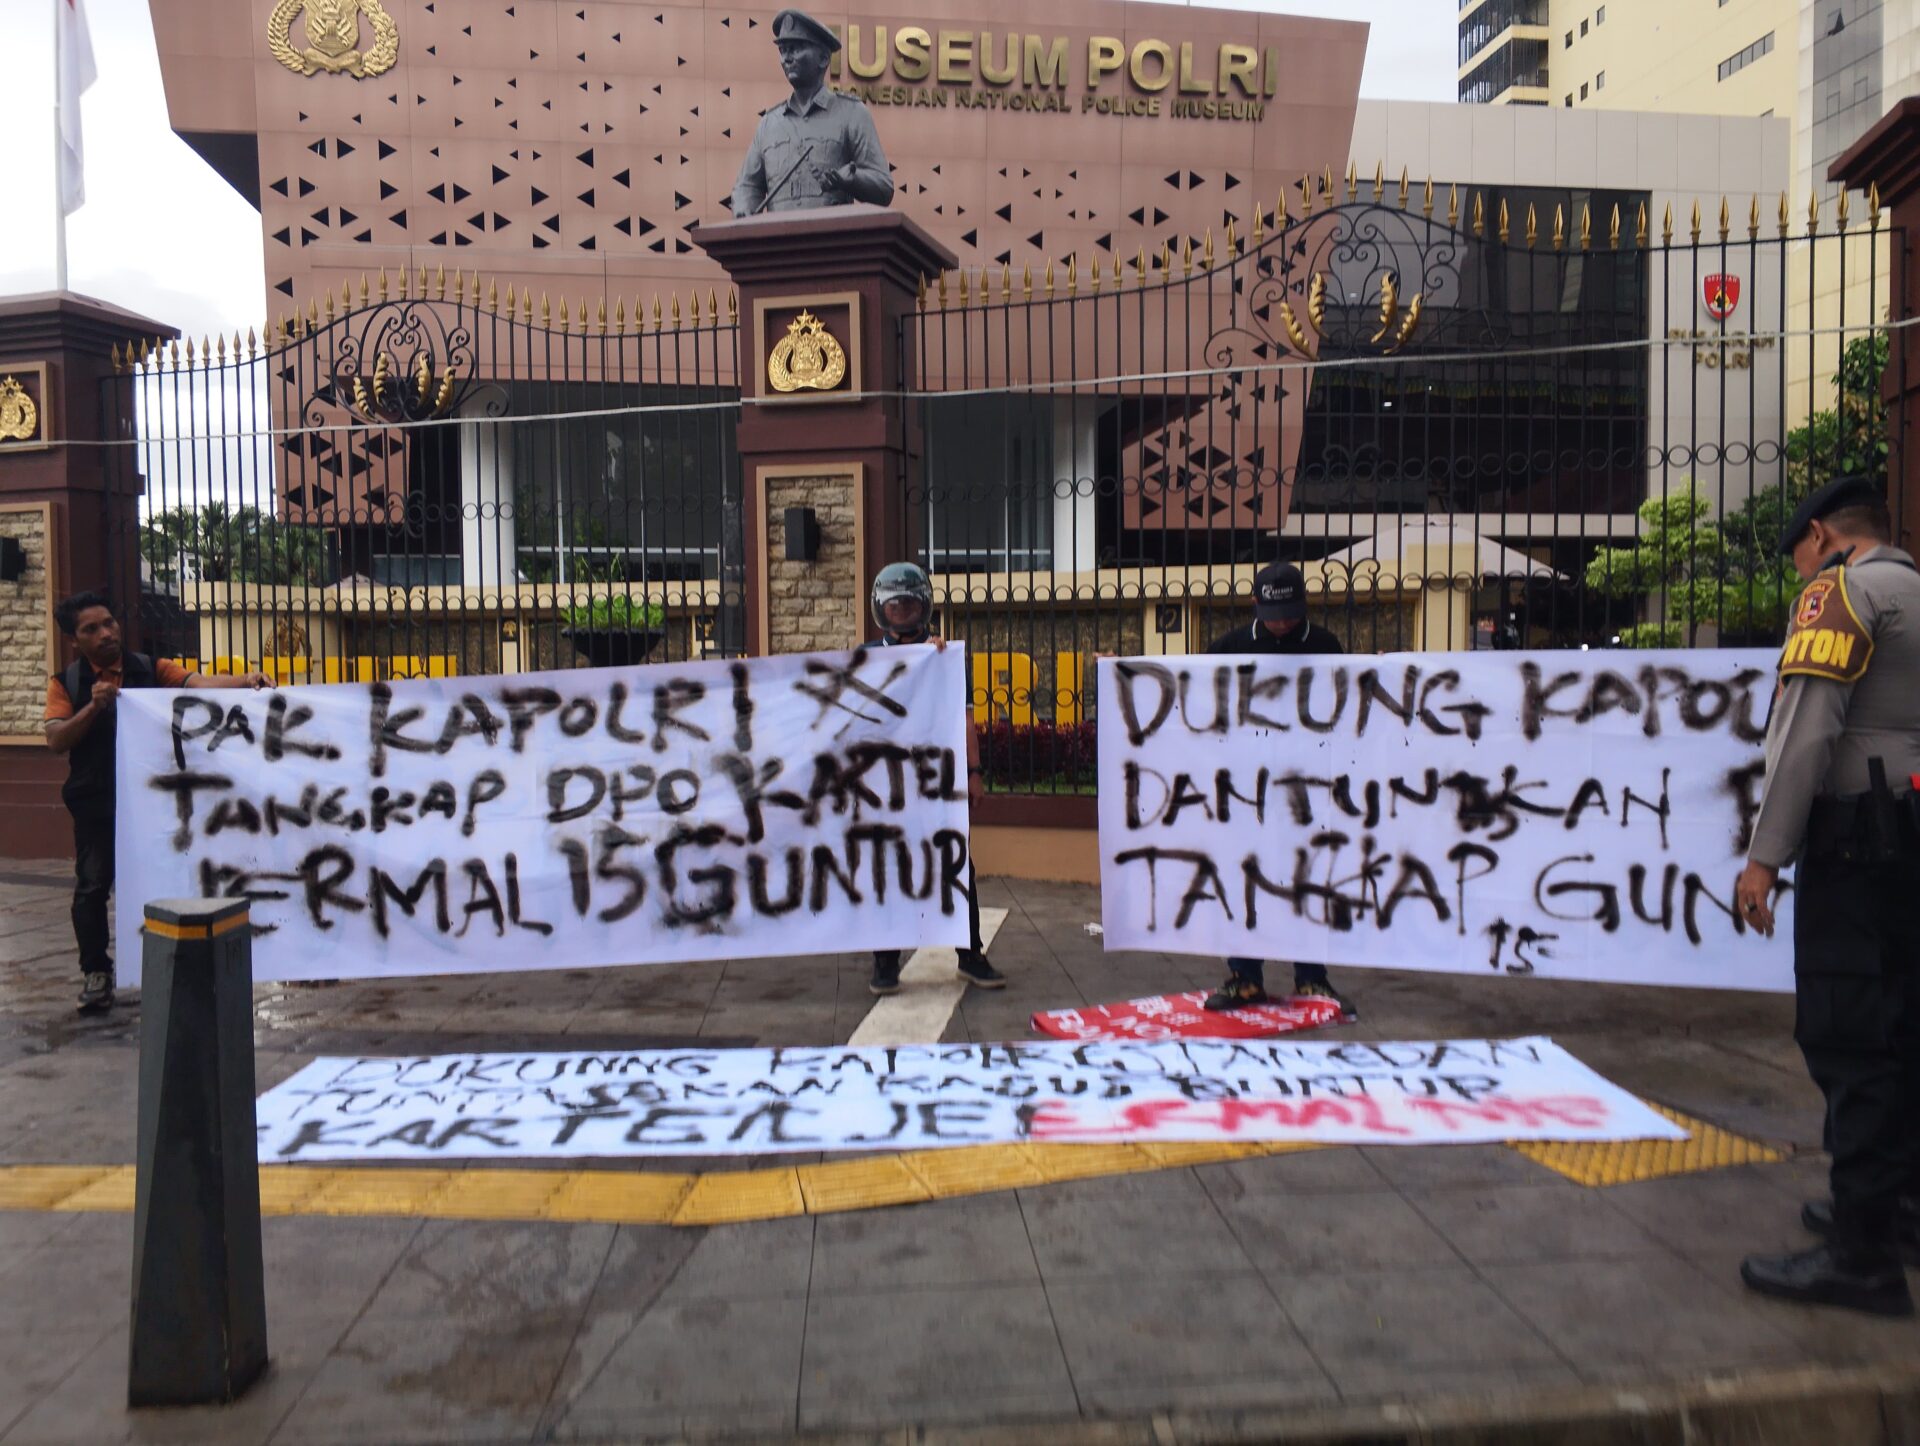 MUSEUM POLRI
ONESIAN NATIONAL POLICE MUSEUM
POLRI
PAK KAPOLRI
TANGKAP DPO KARTEL
JERMAL 15 GUNTUR
DUKUNG KAPOL
DANTUNTASKAN
TANGKAP GUN
15
NTON
DUKUNNG KAPOLRESTAMEDAN
KASUS GUNTUR
KARTEL JEERMAL